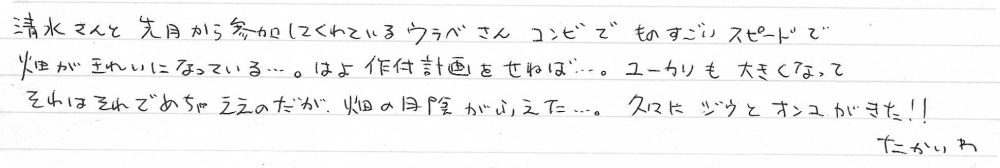 清水さんと先月から参加してくれているウラベさんコンビでものすごいスピードで
畑がきれいになっている…。はよ作付計画をせねば…。ユーカリも大きくなって
それはそれでめちゃええのだが、畑の日陰がふえた…。久々にジウとオンユがきた!!
たかいわ